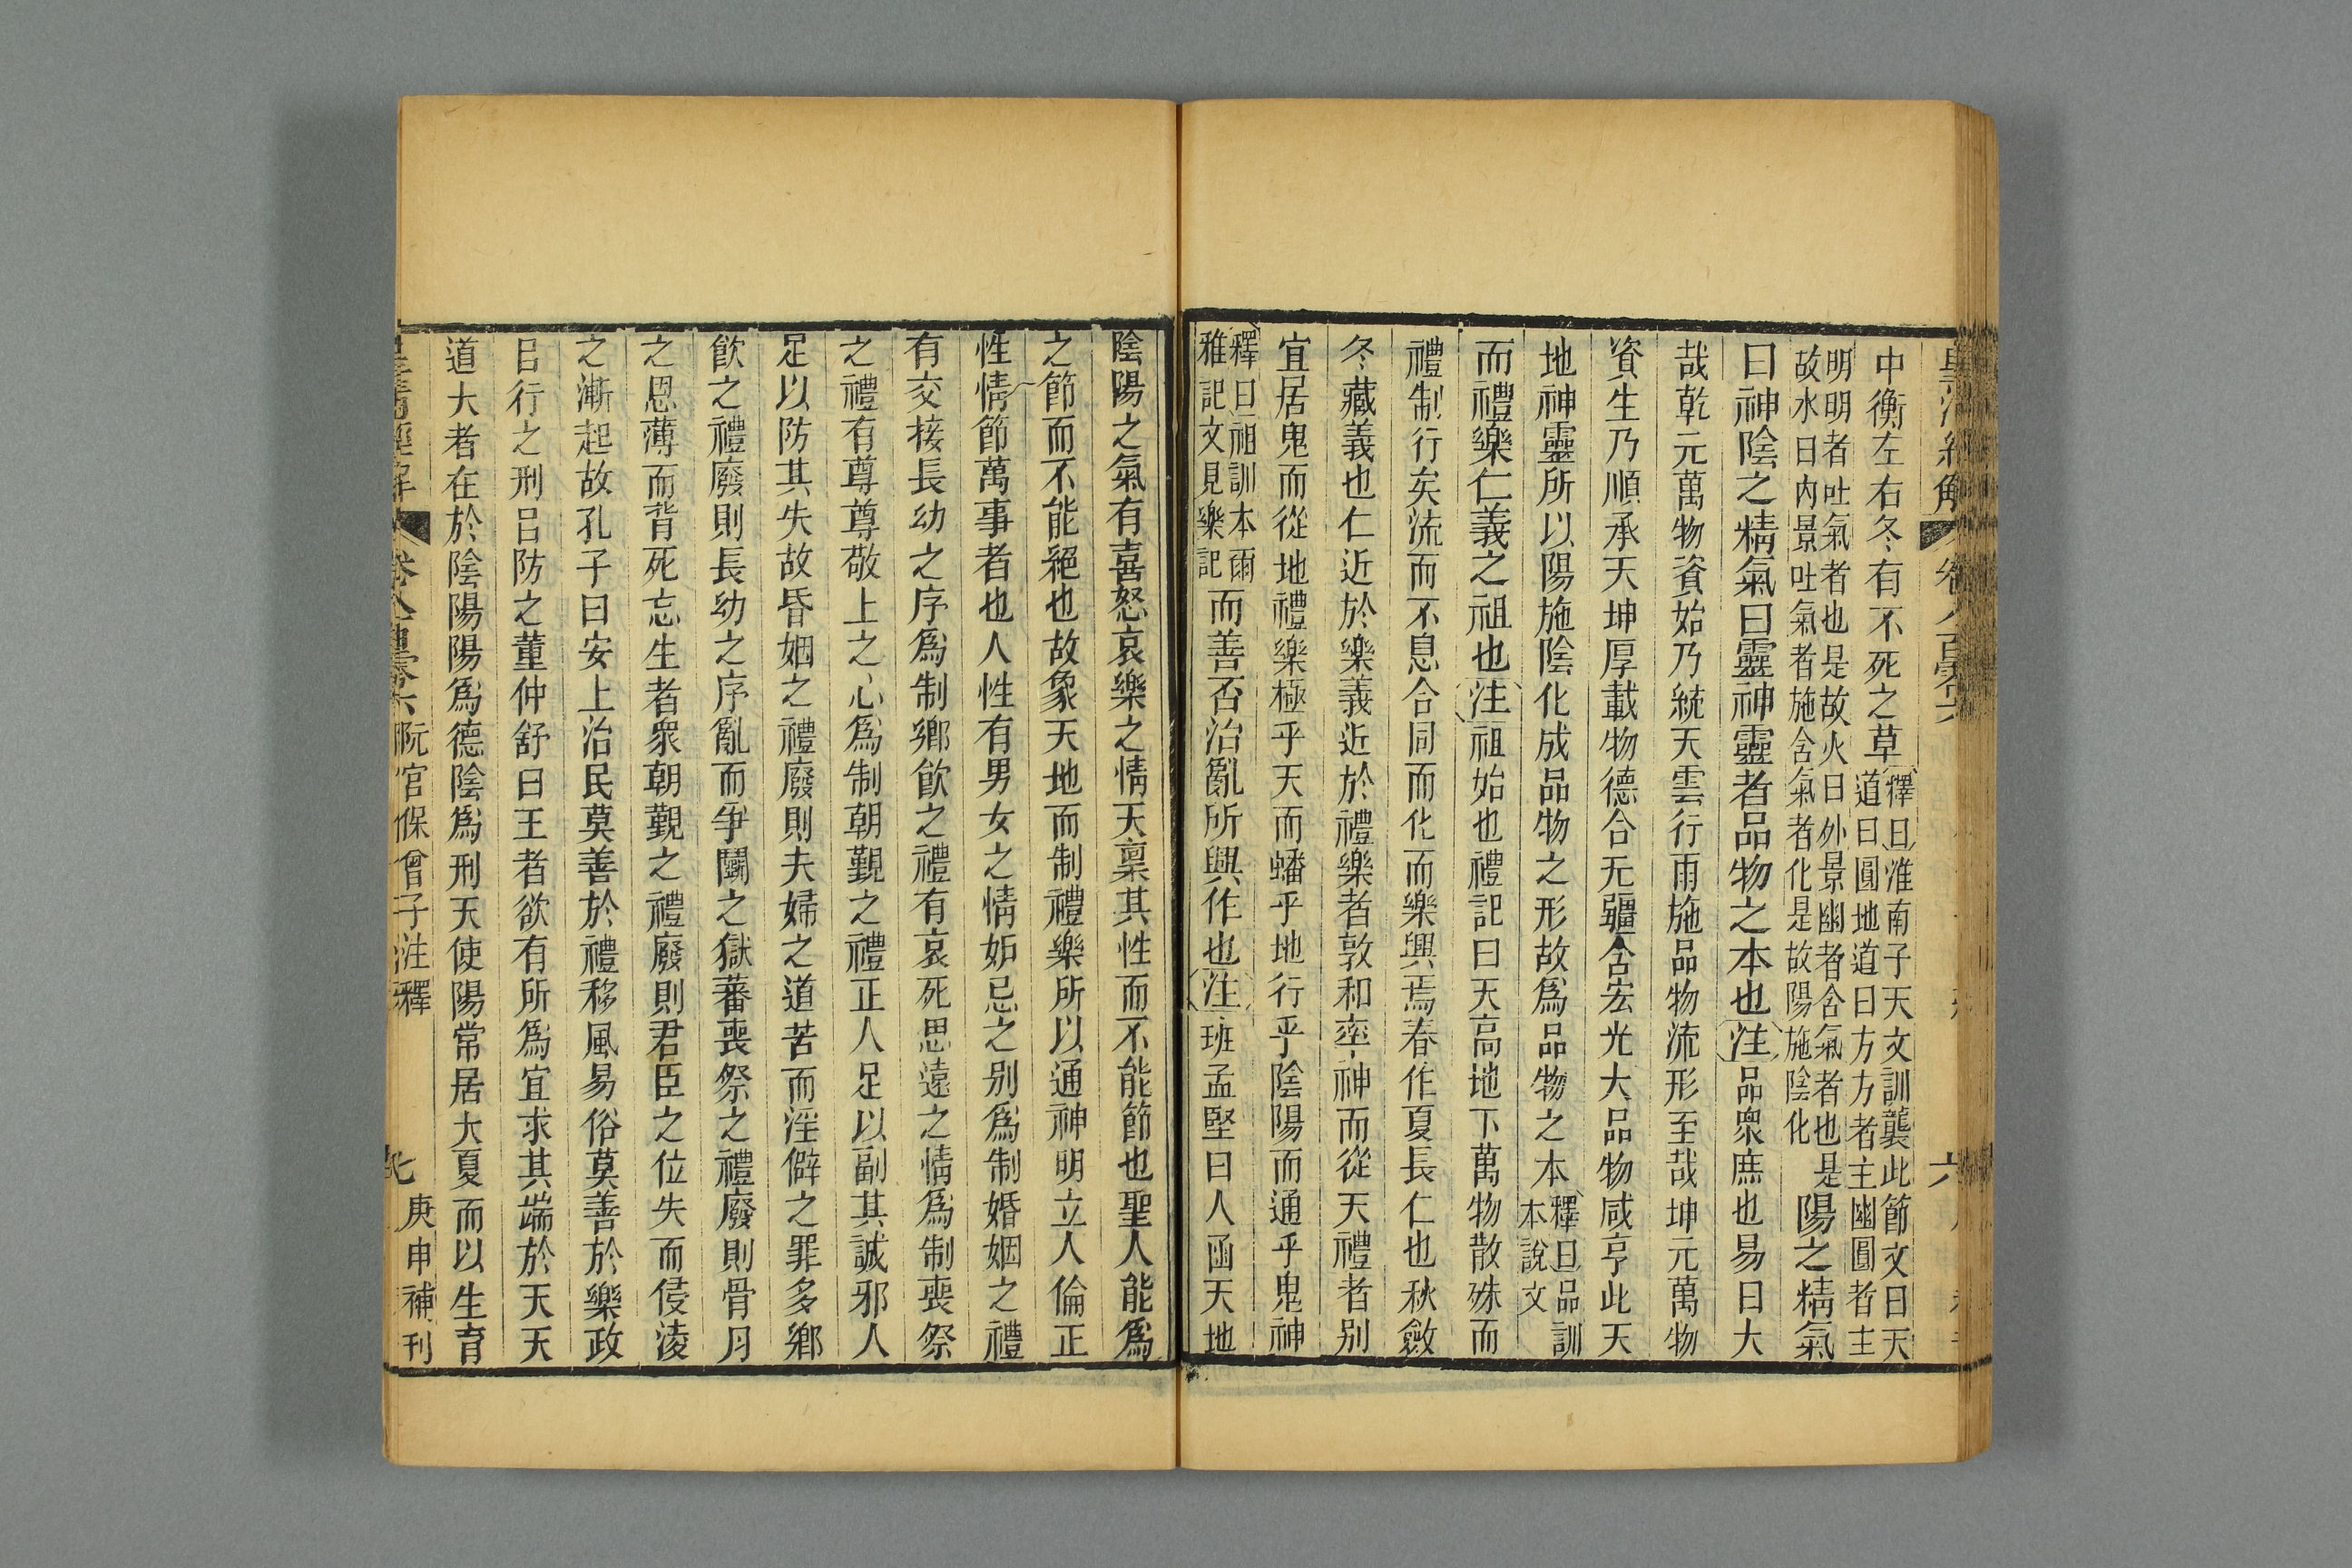 中衡左右冬有不死之草釋曰淮南子天文訓襲此節文曰天
道曰圓地道曰方方者主幽圓者主
明明者吐氣者也是故火曰外景幽者含氣者也是
故水曰內景吐氣者施含氣者化是故陽施陰化
陽之精氣
曰神陰之精氣曰靈神靈者品物之本也注品衆庶也易曰大
哉乾元萬物資始乃統天雲行雨施品物流形至哉坤元萬物
資生乃順承天坤厚載物德合无疆含宏光大品物咸亨此天
地神靈所以陽施陰化成品物之形故爲品物之本釋曰品訓
本說文
而禮樂仁義之祖也注祖始也禮記曰天高地下萬物散殊而
禮制行矣流而不息合同而化而樂興焉春作夏長仁也秋斂
冬藏義也仁近於樂義近於禮樂者敦和率神而從天禮者别
宜居鬼而從地禮樂極乎天而蟠乎地行乎陰陽而通乎鬼神
釋曰祖訓本爾
雅記文見樂記
而善否治亂所興作也注班孟堅曰人函天地
陰陽之氣有喜怒哀樂之情天稟其性而不能節也聖人能爲
之節而不能絕也故象天地而制禮樂所以通神明立人倫正
性情節萬事者也人性有男女之情妬忌之别爲制婚姻之禮
有交接長幼之序爲制鄉飲之禮有哀死思遠之情爲制喪祭
之禮有尊尊敬上之心爲制朝覲之禮正人足以副其誠邪人
足以防其失故昏姻之禮廢則夫婦之道苦而淫僻之罪多鄉
飲之禮廢則長幼之序亂而爭鬭之獄蕃喪祭之禮廢則骨月
之恩薄而背死忘生者衆朝覲之禮廢則君臣之位失而侵淩
之漸起故孔子曰安上治民莫善於禮移風易俗莫善於樂政
㠯行之刑㠯防之董仲舒曰王者欲有所爲宜求其端於天天
道大者在於陰陽陽爲德陰爲刑天使陽常居大夏而以生育
皇清經解
卷八百零六
阮宫保曾子注釋
七
庚申補刊